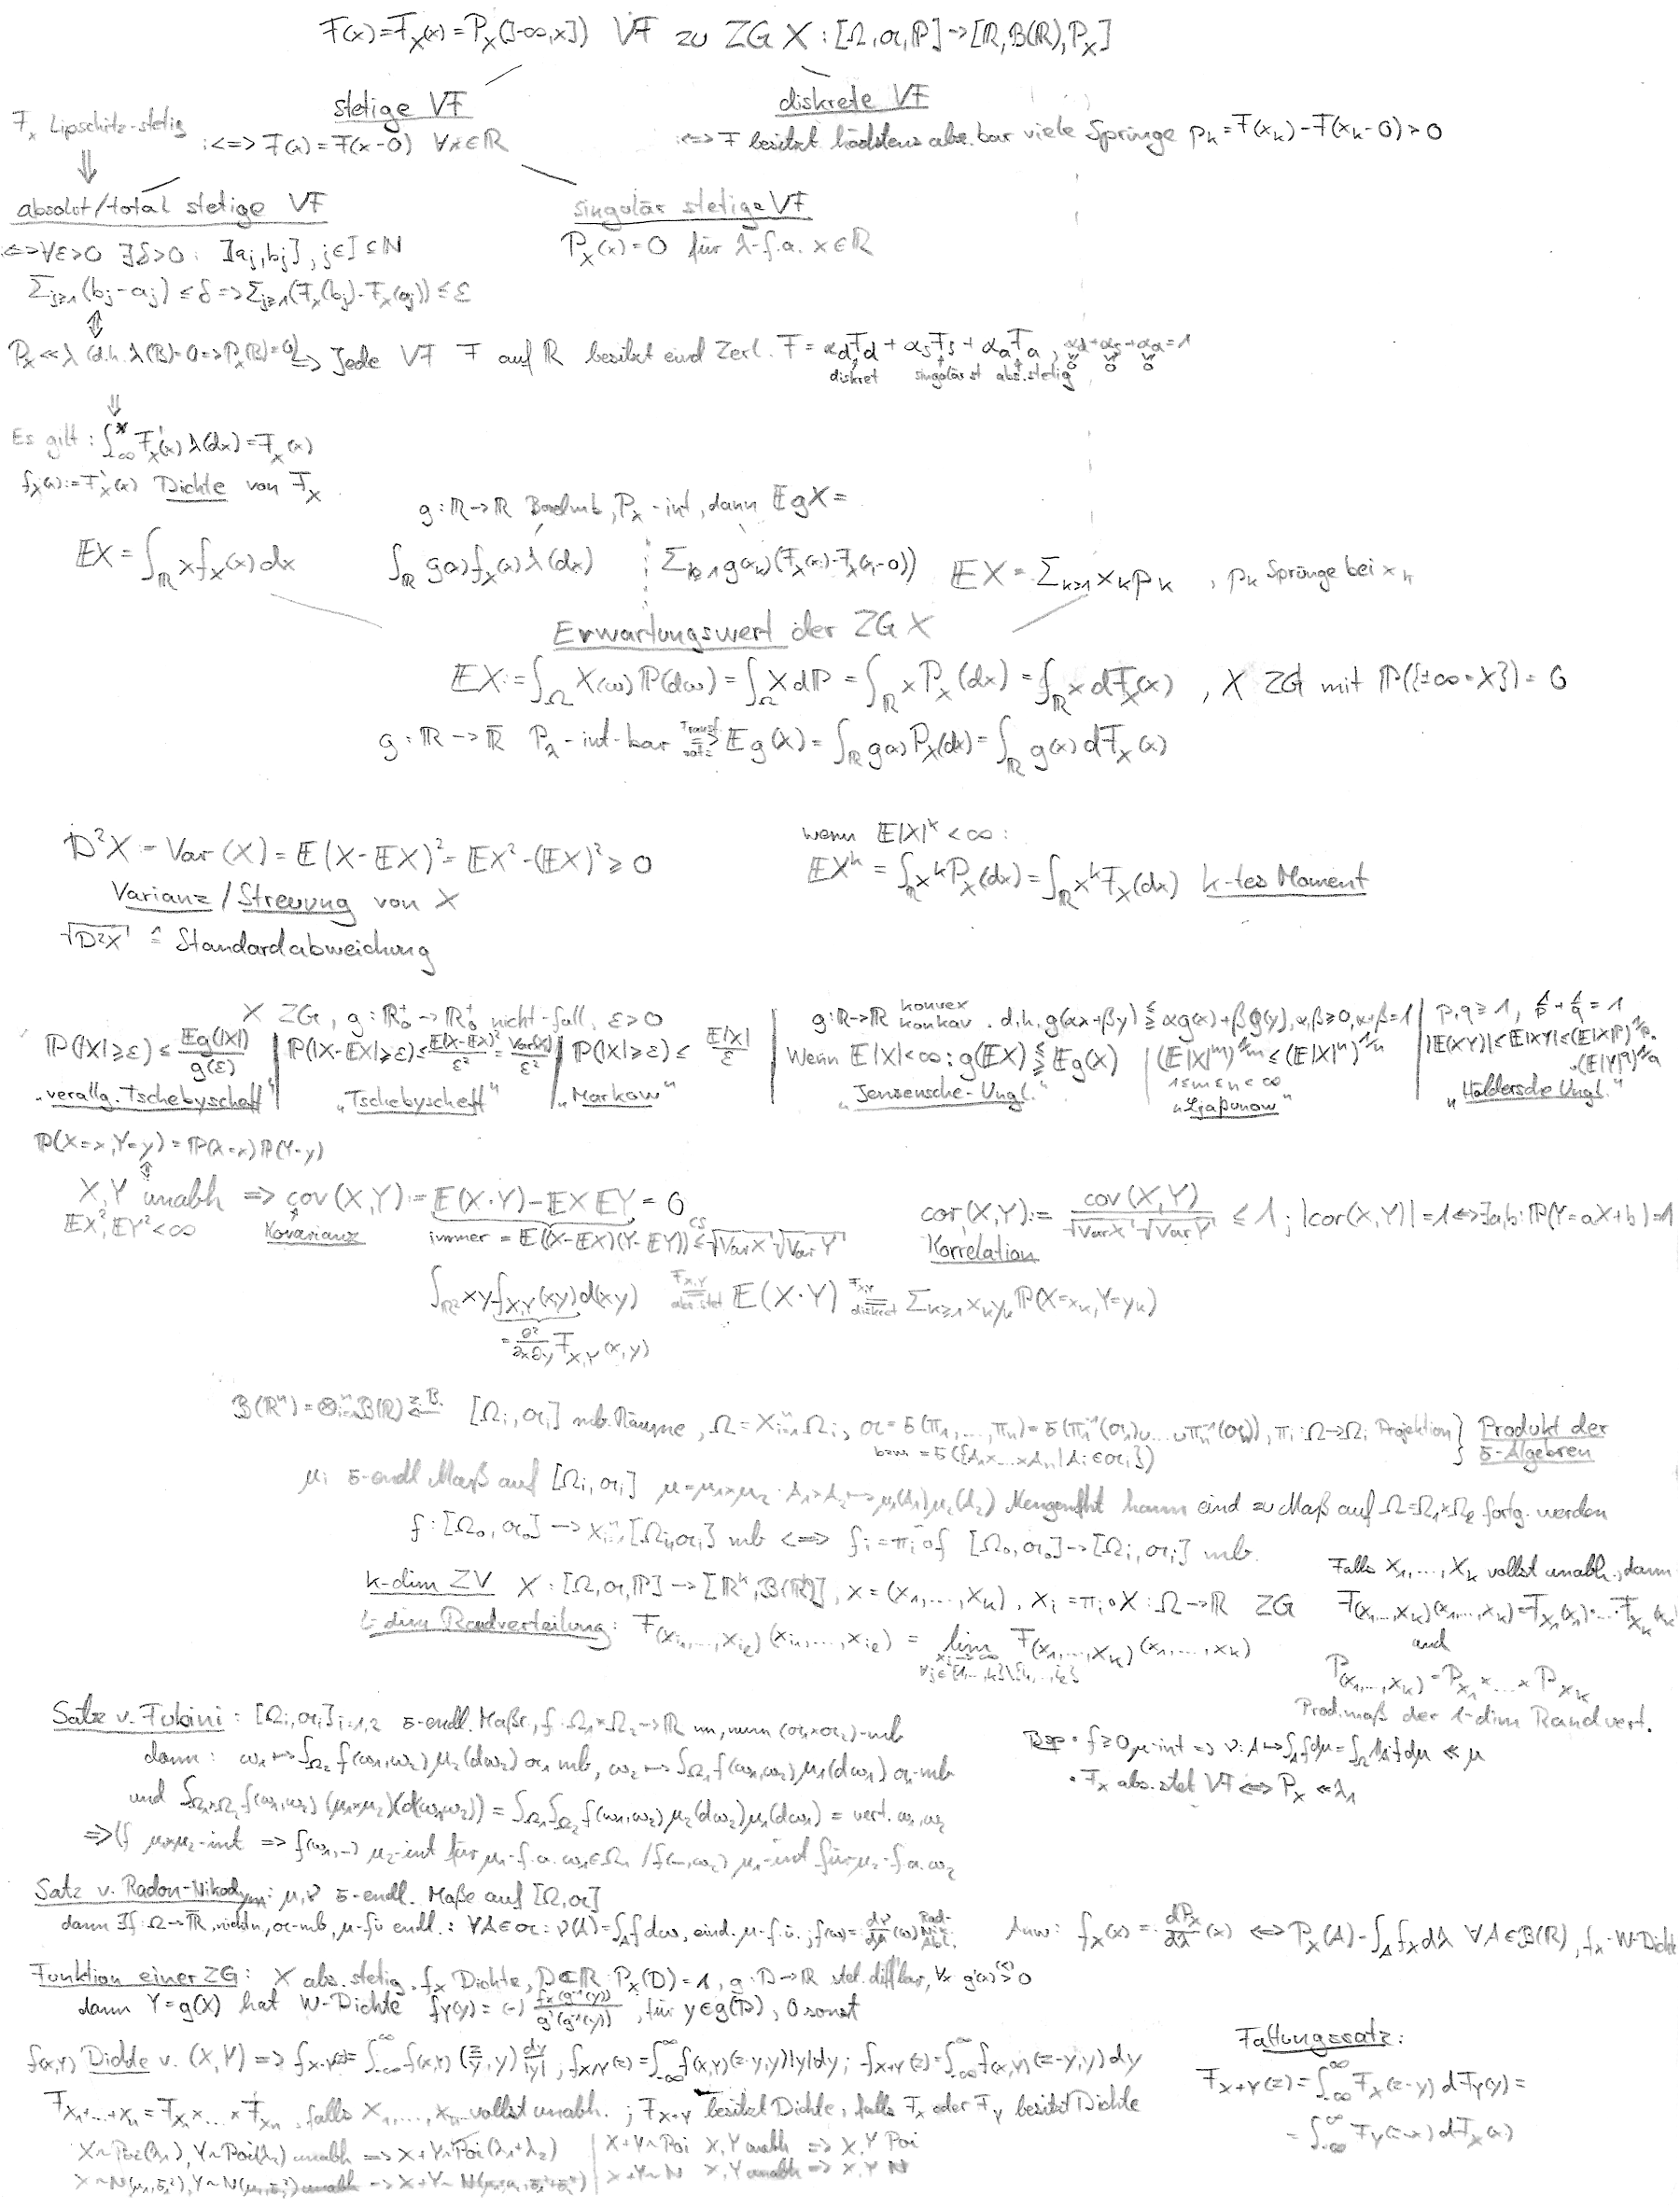 F(x)=F_X(x)=P_X(]-∞,x]) VF zu ZG X:[Ω,𝔄,ℙ]→[ℝ,B(ℝ),P_X]
stetige VF
diskrete VF
F_X Lipschitz-stetig
:<=> F(x)=F(x-0) ∀x∈ℝ
:<=> F besitzt höchstens abz.bar viele Sprünge p_k=F(x_k)-F(x_k-0)>0
absolut/total stetige VF
singulär stetige VF
<=>∀ε>0 ∃δ>0: ]a_j,b_j], j∈J⊆ℕ
P_X(x)=0 für λ-f.a. x∈ℝ
Σ_{j≥1}(b_j-a_j)≤δ=>Σ_{j≥1}(F_X(b_j)-F_X(a_j))≤ε
P_X≪λ (d.h. λ(B)=0=>P_X(B)=0) => Jede VF F auf ℝ besitzt eind Zerl. F=α_dF_d+α_sF_s+α_aF_a, α_d+α_s+α_a=1
diskret singulär st abs.stetig
Es gilt: ∫_{-∞}^x F'_X(x)λ(dx)=F_X(x)
f_X(x):=F'_X(x) Dichte von F_X
g:ℝ→ℝ Borelmb, P_X-int, dann 𝔼gX=
𝔼X=∫_ℝ x f_X(x)dx
∫_ℝ g(x)f_X(x)λ(dx)
Σ_{k≥1}g(x_k)(F_X(x_k)-F_X(x_k-0))
𝔼X=Σ_{k≥1}x_k p_k , p_k Sprünge bei x_k
Erwartungswert der ZG X
𝔼X:=∫_Ω X(ω)ℙ(dω)=∫_Ω X dℙ=∫_ℝ x P_X(dx)=∫_ℝ x dF_X(x) , X ZG mit ℙ({±∞=X})=0
g:ℝ→ℝ̄ P_X-int-bar =Transf. satz=> 𝔼g(X)=∫_ℝ g(x)P_X(dx)=∫_ℝ g(x)dF_X(x)
D²X=Var(X)=𝔼(X-𝔼X)²=𝔼X²-(𝔼X)²≥0
Varianz/Streuung von X
√D²X ≙ Standardabweichung
wenn 𝔼|X|^k<∞:
𝔼X^k=∫_ℝ x^k P_X(dx)=∫_ℝ x^k F_X(dx) k-tes Moment
X ZG, g:ℝ₀⁺→ℝ₀⁺ nicht-fall, ε>0
ℙ(|X|≥ε)≤𝔼g(|X|)/g(ε) | ℙ(|X-𝔼X|≥ε)≤𝔼(X-𝔼X)²/ε²=Var(X)/ε² | ℙ(|X|≥ε)≤𝔼|X|/ε
„verallg. Tschebyscheff" „Tschebyscheff" „Markow"
g:ℝ→ℝ konvex konkav, d.h. g(αx+βy)≤≥αg(x)+βg(y), α,β≥0, α+β=1
Wenn 𝔼|X|<∞: g(𝔼X)≤≥𝔼g(X)
„Jensensche-Ungl."
(𝔼|X|^m)^{1/m}≤(𝔼|X|^n)^{1/n}
1≤m≤n<∞
„Ljapunow"
p,q≥1, 1/p+1/q=1
|𝔼(XY)|≤𝔼|XY|≤(𝔼|X|^p)^{1/p}·
·(𝔼|Y|^q)^{1/q}
„Höldersche Ungl."
ℙ(X=x,Y=y)=ℙ(X=x)ℙ(Y=y)
X,Y unabh => cov(X,Y):=𝔼(X·Y)-𝔼X𝔼Y=0
𝔼X²,𝔼Y²<∞ Kovarianz immer=𝔼((X-𝔼X)(Y-𝔼Y)) ≤CS √VarX √VarY
cor(X,Y):=cov(X,Y)/(√VarX √VarY)≤1; |cor(X,Y)|=1<=>∃a,b:ℙ(Y=aX+b)=1
Korrelation
∫_{ℝ²}xy f_{X,Y}(x,y)d(x,y) =F_{X,Y} abs.stet= 𝔼(X·Y) =F_{X,Y} diskret= Σ_{k≥1}x_k y_k ℙ(X=x_k,Y=y_k)
=∂²/∂x∂y F_{X,Y}(x,y)
B(ℝⁿ)=⊗_{i=1}^n B(ℝ) z.B. [Ω_i,𝔄_i] mb. Räume, Ω=×_{i=1}^n Ω_i, 𝔄=σ(π_1,...,π_n)=σ(π_1^{-1}(𝔄_1)∪...∪π_n^{-1}(𝔄_n)), π_i:Ω→Ω_i Projektion} Produkt der
bzw. =σ({A_1×...×A_n|A_i∈𝔄_i}) σ-Algebren
μ_i σ-endl Maß auf [Ω_i,𝔄_i] μ=μ_1×μ_2: A_1×A_2↦μ_1(A_1)μ_2(A_2) Mengenfkt kann eind zu Maß auf Ω=Ω_1×Ω_2 fortg. werden
f:[Ω_0,𝔄_0]→×_{i=1}^n[Ω_i,𝔄_i] mb <=> f_i=π_i∘f [Ω_0,𝔄_0]→[Ω_i,𝔄_i] mb.
k-dim ZV X:[Ω,𝔄,ℙ]→[ℝ^k,B(ℝ^k)], X=(X_1,...,X_k), X_i=π_i∘X:Ω→ℝ ZG
l-dim Randverteilung: F_{(X_{i1},...,X_{il})}(x_{i1},...,x_{il})=lim F_{(X_1,...,X_k)}(x_1,...,x_k)
x_j→∞ ∀j∈{1,...,k}\{i_1,...,i_l}
Falls X_1,...,X_k vollst unabh., dann
F_{(X_1,...,X_k)}(x_1,...,x_k)=F_{X_1}(x_1)·...·F_{X_k}(x_k)
und
P_{(X_1,...,X_k)}=P_{X_1}×...×P_{X_k}
Prod.maß der 1-dim Randvert.
Satz v. Fubini: [Ω_i,𝔄_i]_{i=1,2} σ-endl. Maßr, f:Ω_1×Ω_2→ℝ nn, (𝔄_1×𝔄_2)-mb
dann: ω_1↦∫_{Ω_2}f(ω_1,ω_2)μ_2(dω_2) 𝔄_1 mb, ω_2↦∫_{Ω_1}f(ω_1,ω_2)μ_1(dω_1) 𝔄_2-mb
und ∫_{Ω_1×Ω_2}f(ω_1,ω_2)(μ_1×μ_2)(d(ω_1,ω_2))=∫_{Ω_1}∫_{Ω_2}f(ω_1,ω_2)μ_2(dω_2)μ_1(dω_1)=vert. ω_1,ω_2
=>(f μ_1×μ_2-int => f(ω_1,–) μ_2-int für μ_1-f.a. ω_1∈Ω_1 / f(–,ω_2) μ_1-int für μ_2-f.a. ω_2
Bsp • f≥0, μ-int => ν:A↦∫_A f dμ=∫_Ω 1_A f dμ ≪ μ
• F_X abs.stet VF <=> P_X≪λ_1
Satz v. Radon-Nikodym: μ,ν σ-endl. Maße auf [Ω,𝔄]
dann ∃f:Ω→ℝ̄, nichtn, 𝔄-mb, μ-fü endl.: ∀A∈𝔄: ν(A)=∫_A f dω, eind. μ-f.ü.; f(ω)=dν/dμ(ω) Rad-Nik Abl.
Anw: f_X(x)=dP_X/dλ(x) <=> P_X(A)=∫_A f_X dλ ∀A∈B(ℝ), f_X-W-Dichte
Funktion einer ZG: X abs.stetig, f_X Dichte, D⊂ℝ P_X(D)=1, g:D→ℝ stet.diffbar, ∀x g'(x)>(<)0
dann Y=g(X) hat W-Dichte f_Y(y)=(-)f_X(g^{-1}(y))/g'(g^{-1}(y)), für y∈g(D), 0 sonst
f_{(X,Y)} Dichte v. (X,Y) => f_{X·Y}(z)=∫_{-∞}^∞ f_{(X,Y)}(z/y,y)dy/|y|, f_{X/Y}(z)=∫_{-∞}^∞ f_{(X,Y)}(z·y,y)|y|dy; f_{X+Y}(z)=∫_{-∞}^∞ f_{(X,Y)}(z-y,y)dy
F_{X_1+...+X_n}=F_{X_1}*...*F_{X_n}, falls X_1,...,X_n vollst unabh.; F_{X+Y} besitzt Dichte, falls F_X oder F_Y besitzt Dichte
X~Poi(λ_1), Y~Poi(λ_2) unabh => X+Y~Poi(λ_1+λ_2) | X+Y~Poi X,Y unabh => X,Y Poi
X~N(μ_1,σ_1²), Y~N(μ_2,σ_2²) unabh => X+Y~N(μ_1+μ_2,σ_1²+σ_2²) | X+Y~N X,Y unabh => X,Y N
Faltungssatz:
F_{X+Y}(z)=∫_{-∞}^∞ F_X(z-y)dF_Y(y)=
=∫_{-∞}^∞ F_Y(z-x)dF_X(x)